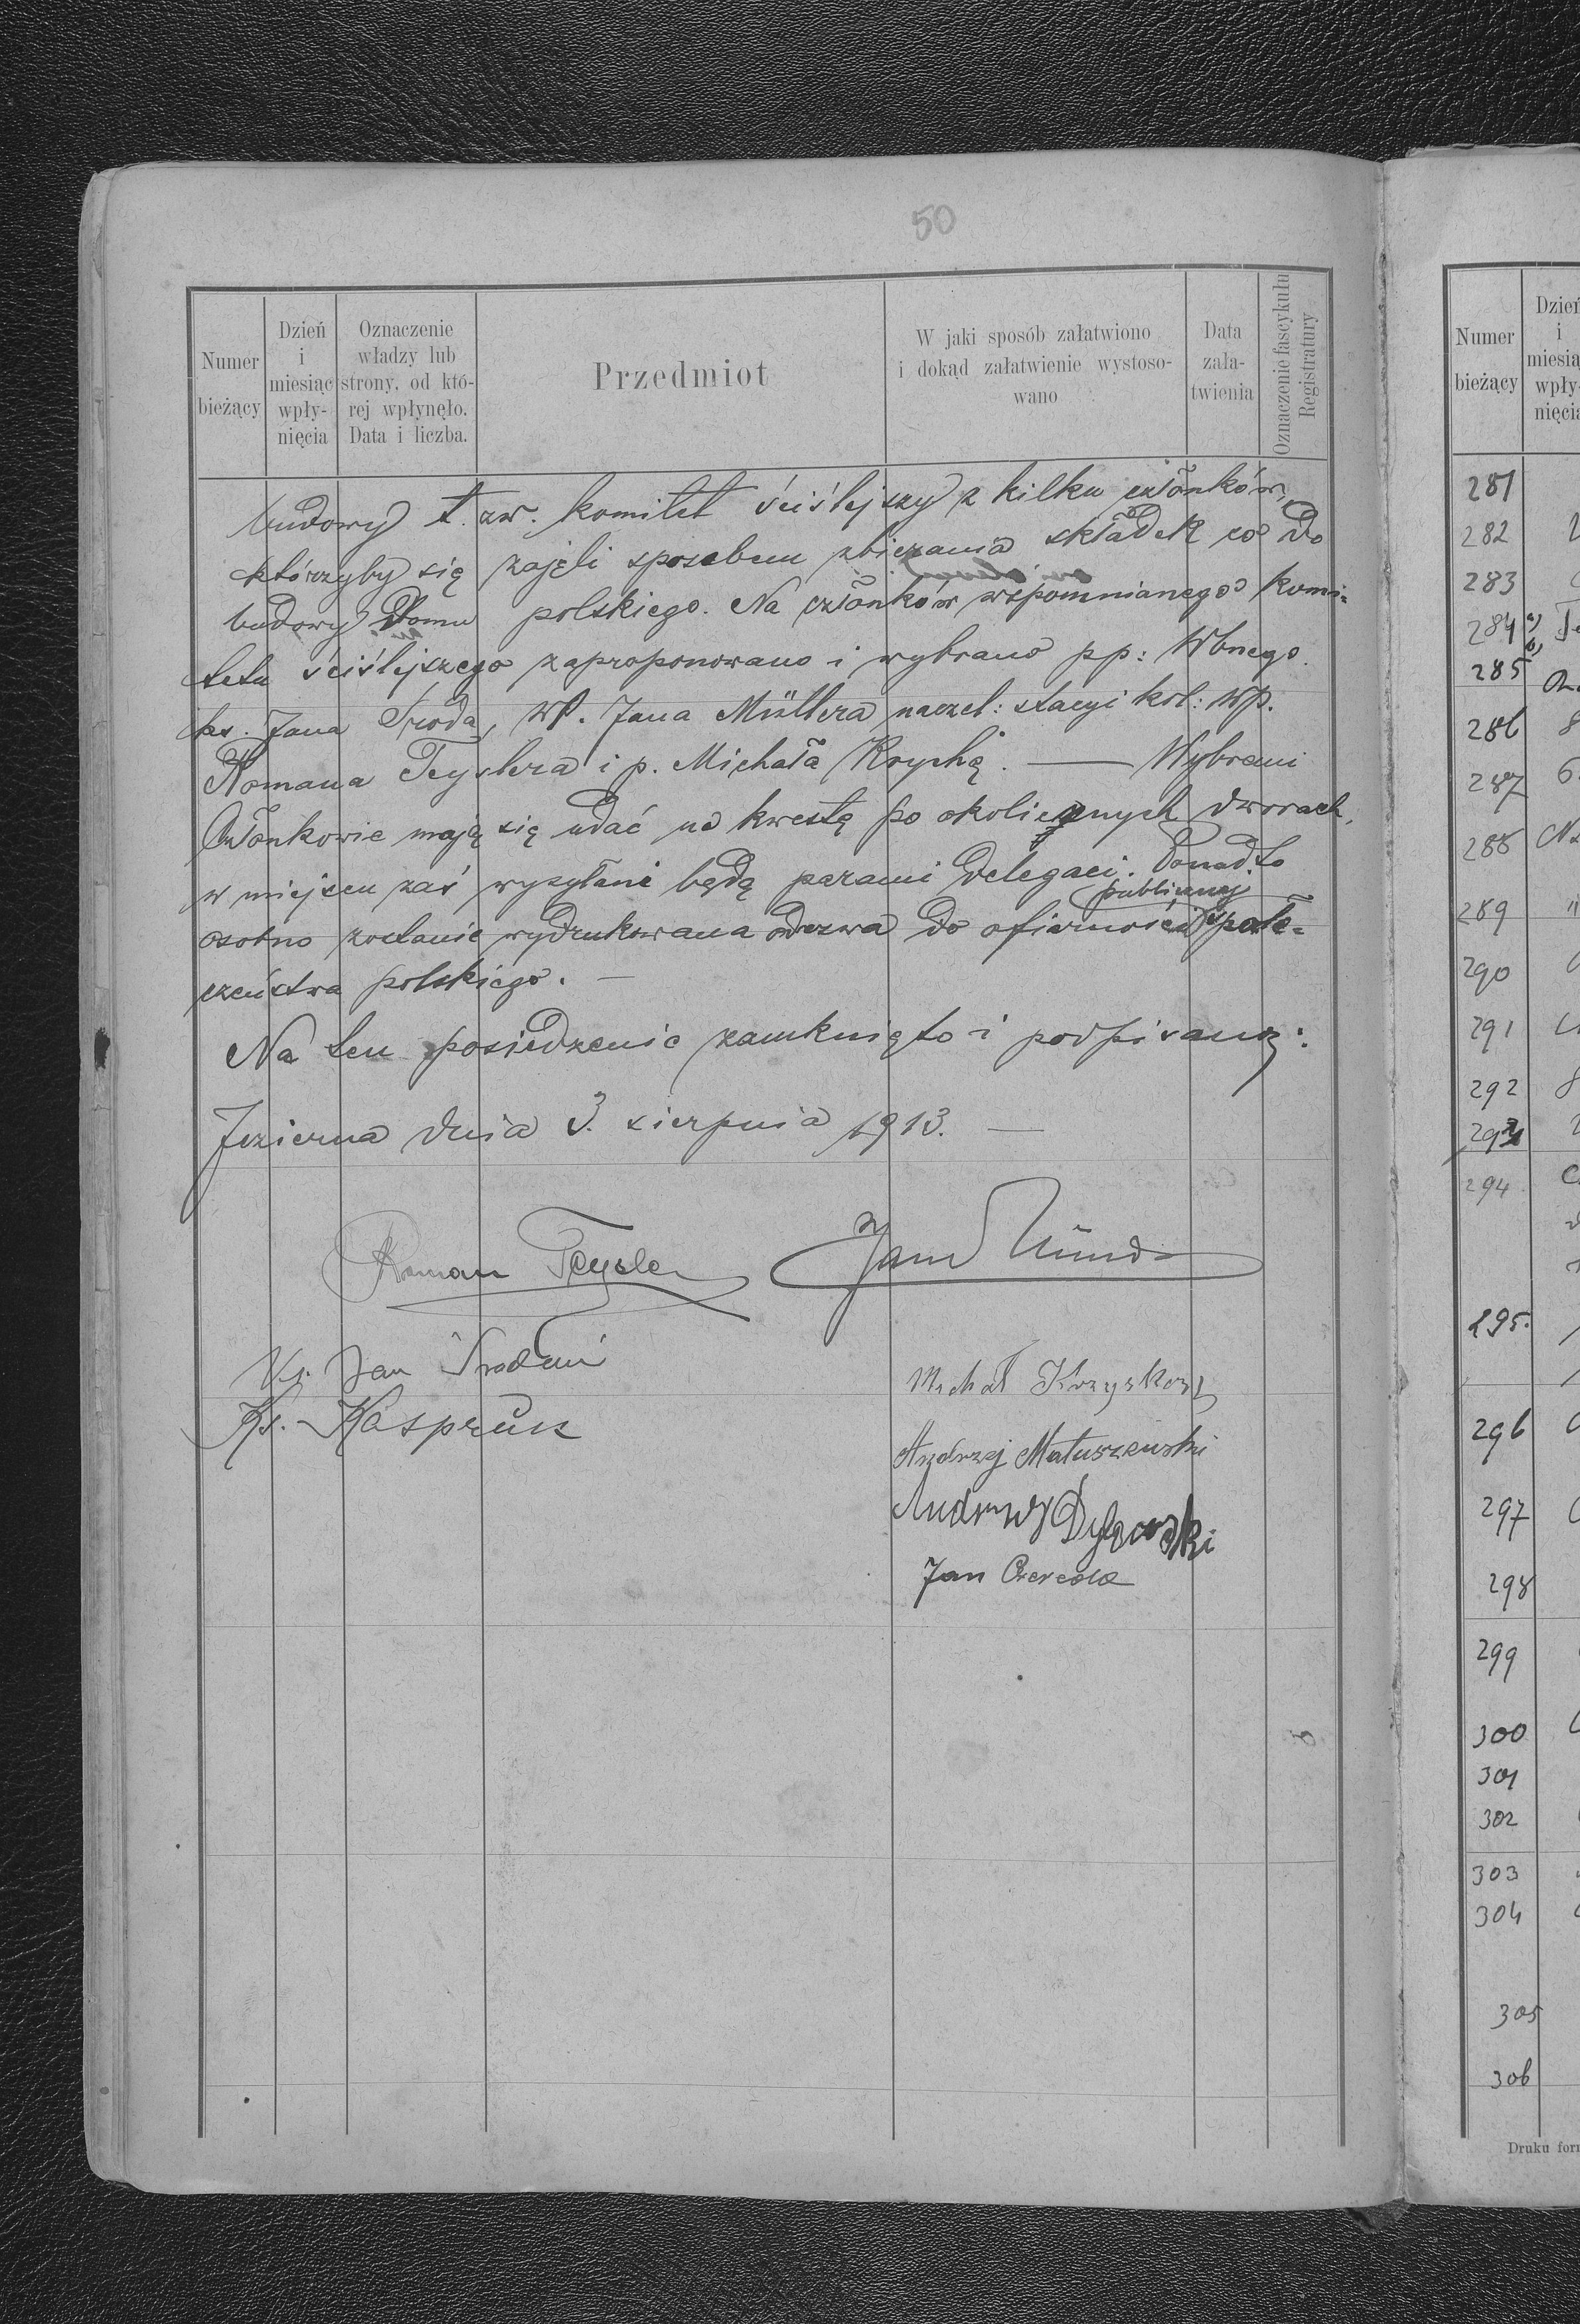 50
Numer bieżący
Dzień i miesiąc wpłynięcia
Oznaczenie władzy lub strony, od której wpłynęło. Data i liczba.
Przedmiot
W jaki sposób załatwiono i dokąd załatwienie wystosowano
Data załatwienia
Oznaczenie fascykułu Registratury
budowy t. zw. komitet ściślejszy z kilku członków,
którzyby się zajęli sposobem zbierania składek co do
budowy Domu polskiego. Na członków wspomnianego komi-
tetu ściślejszego zaproponowano i wybrano pp: Wbnego
ks. Jana Środa, WP. Jana Müllera naczel: stacyi kol: WP.
Romana Teyslera i p. Michała — Wybrani
Członkowie mają się udać na kwestę po okolicznych dworach,
w miejscu zaś wysyłani będą parami Delegaci. Ponadto
publicznej
osobno zostanie wydrukowana odezwa do ofiarności społe-
czeństwa polskiego. —
Na tem posiedzenie zamknięto i podpisano:
Jezierna dnia 3. sierpnia 1913. —
Roman Teysler
Jan
Ks. Jan
Ks. Kasprun
Michał
Andrzej Matuszewski
Andrzej
Jan
Numer bieżący
Dzień i miesią wpły- nięcia
281
282
283
284 a) b)
285
286
287
288
289
290
291
292
293
294
295.
296
297
298
299
300
301
302
303
304
305
306
Druku for